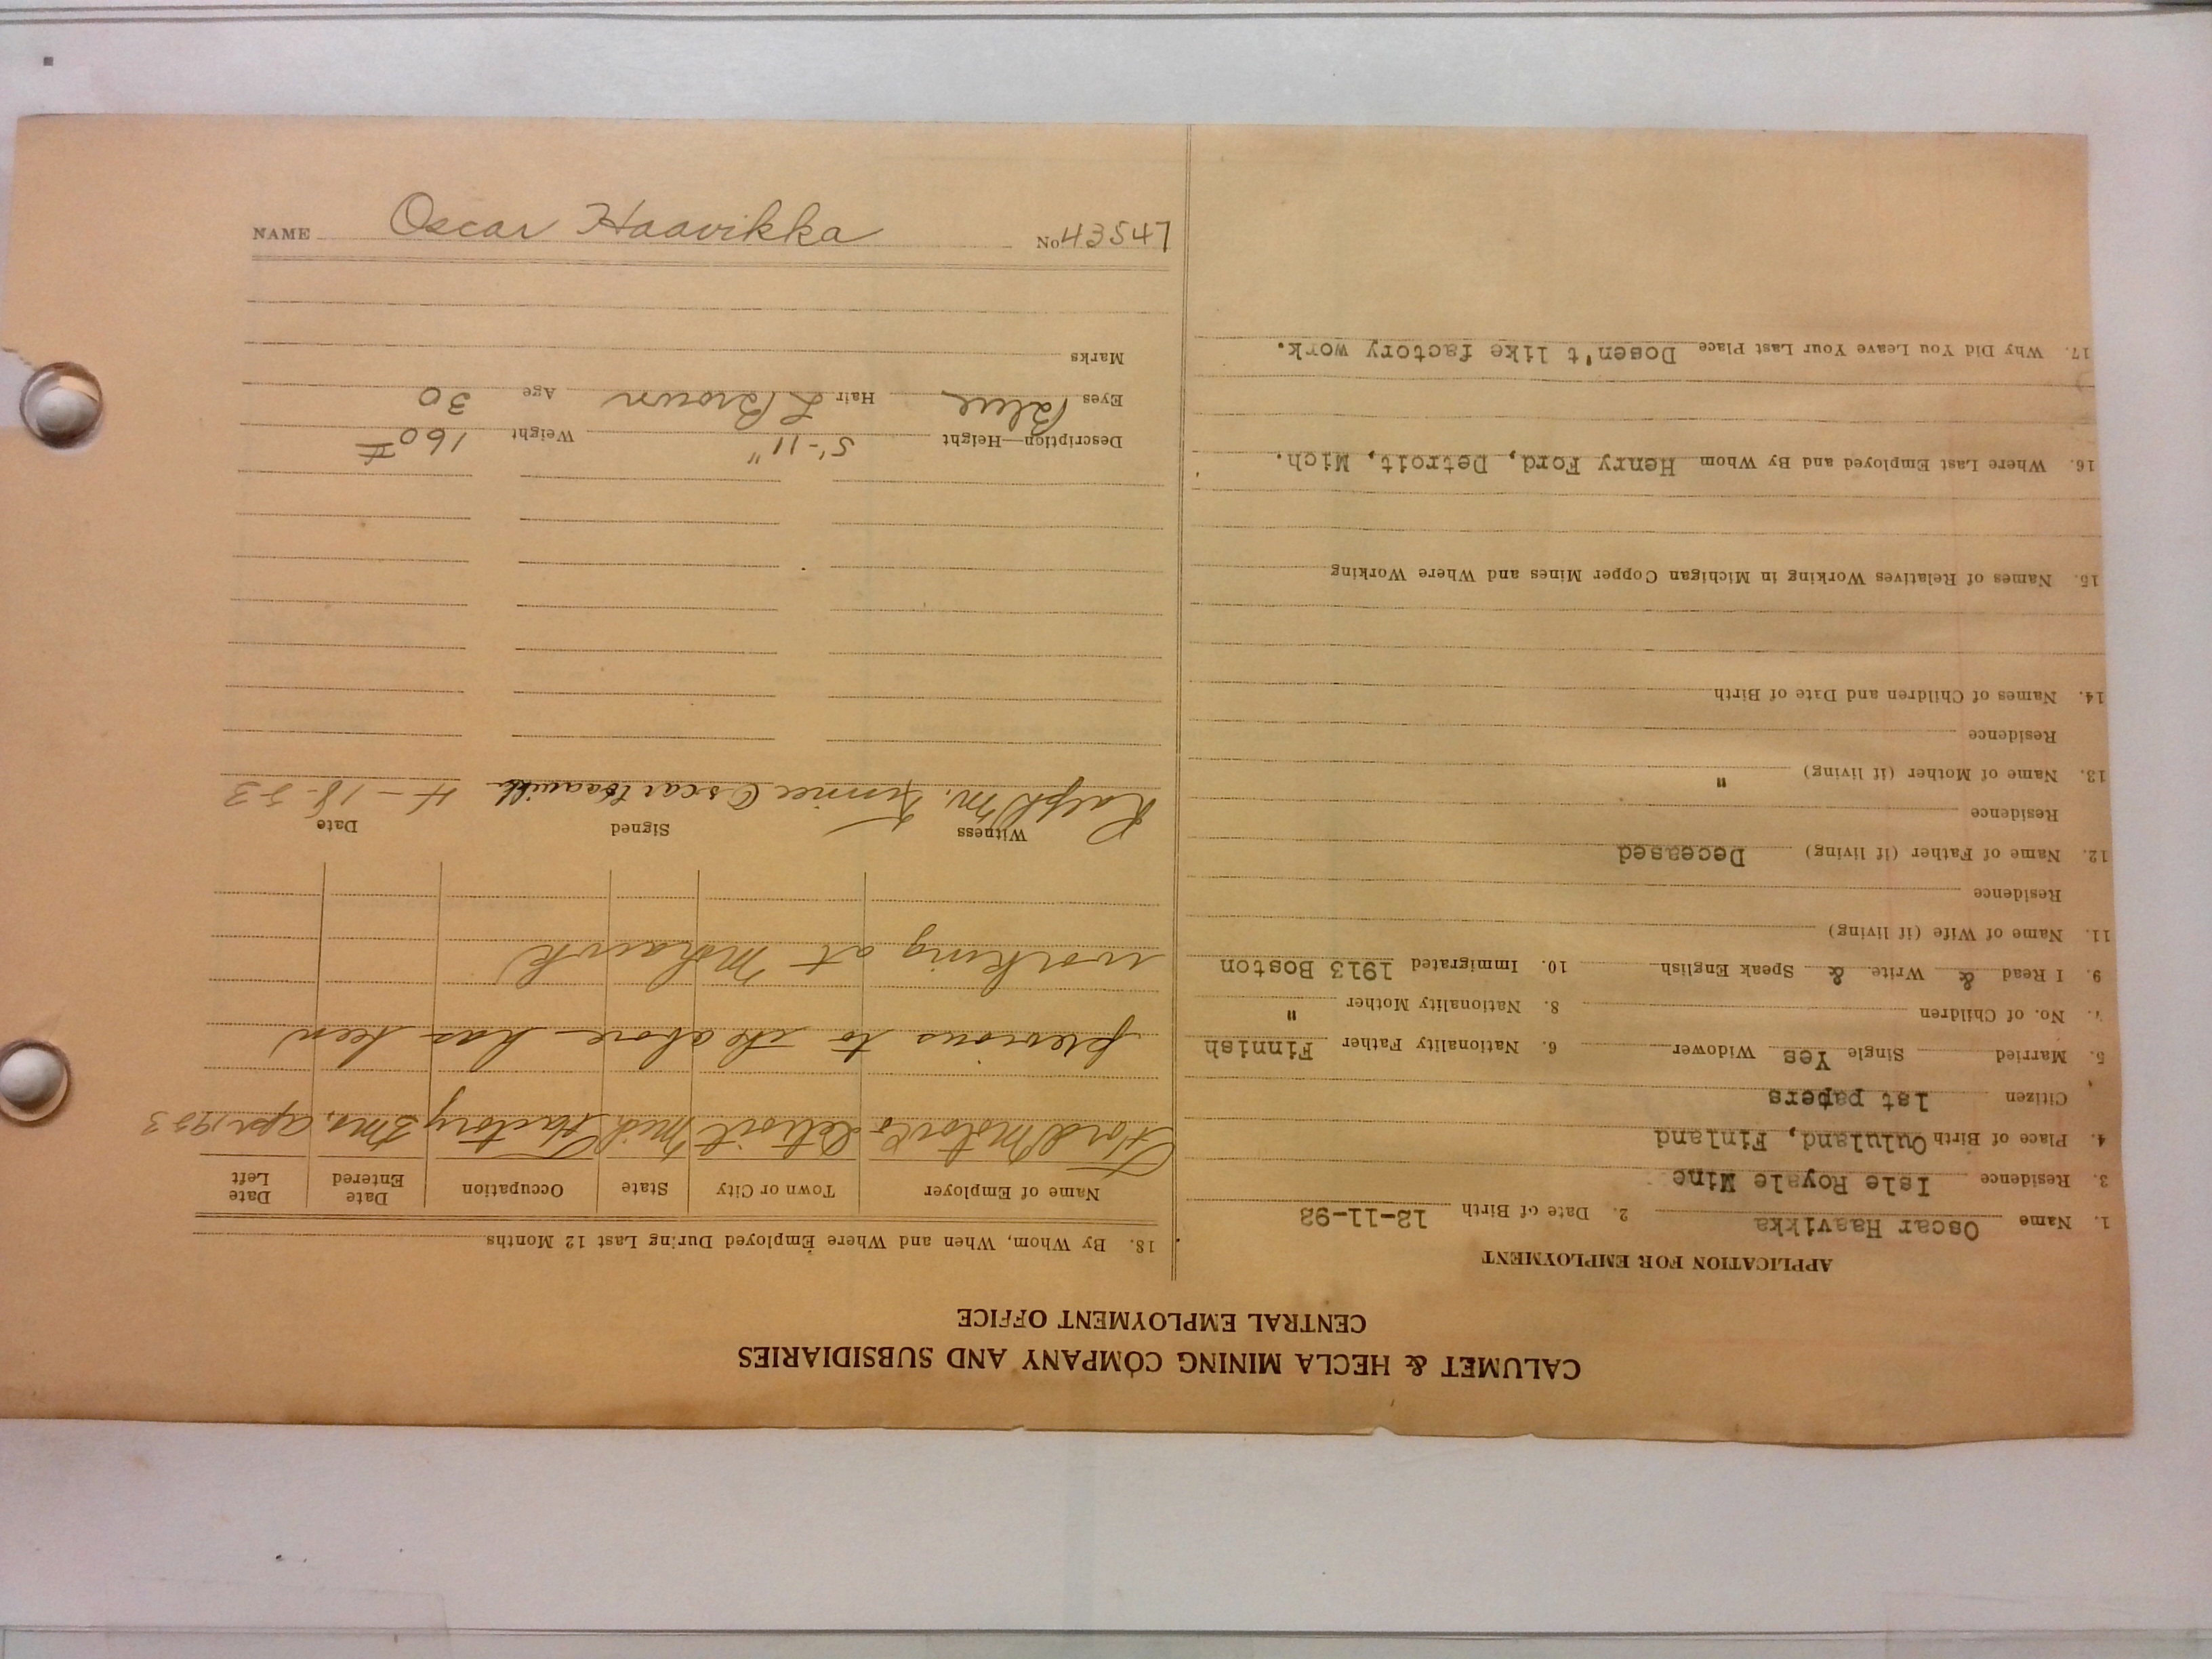 CALUMET & HECLA MINING COMPANY AND SUBSIDIARIES
CENTRAL EMPLOYMENT OFFICE
APPLICATION FOR EMPLOYMENT
1. Name Oscar Haavikka 2. Date of Birth 12-11-92
3. Residence Isle Royale Mine
4. Place of Birth Oululand, Finland
Citizen 1st papers
5. Married Single Yes Widower 6. Nationality Father Finnish
7. No. of Children 8. Nationality Mother "
9. I Read & Write & Speak English 10. Immigrated 1913 Boston
11. Name of Wife (if living)
Residence
12. Name of Father (if living) Deceased
Residence
13. Name of Mother (if living) "
Residence
14. Names of Children and Date of Birth
15. Names of Relatives Working in Michigan Copper Mines and Where Working
16. Where Last Employed and By Whom Henry Ford, Detroit, Mich.
17. Why Did You Leave Your Last Place Dosen't like factory work.
18. By Whom, When and Where Employed During Last 12 Months
Name of Employer Town or City State Occupation Date Entered Date Left
Ford Motor Co Detroit Mich Factory 3 mo. Apr
previous to the above has been
working at Mohawk
Witness Signed Date
Ralph M. Oscar Haavikk 4-18-
Description—Height 5'-11" Weight 160 #
Eyes Blue Hair L Brown Age 30
Marks
NAME Oscar Haavikka No 43547